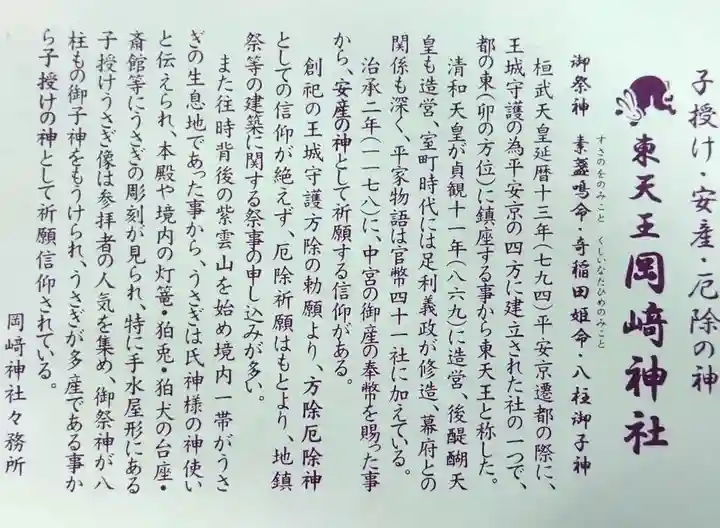 子授け・安産・厄除の神
東天王 岡﨑神社
御祭神　素盞鳴命・奇稲田姫命・八柱御子神
すさのをのみこと　くしいなたひめのみこと
桓武天皇延暦十三年(七九四)平安京遷都の際に、
王城守護の為平安京の四方に建立された社の一つで、
都の東(卯の方位)に鎮座する事から東天王と称した。
清和天皇が貞観十一年(八六九)に造営、後醍醐天
皇も造営、室町時代には足利義政が修造、幕府との
関係も深く、平家物語は官幣四十一社に加えている。
治承二年(一一七八)に、中宮の御産の奉幣を賜った事
から、安産の神として祈願する信仰がある。
創祀の王城守護方除の勅願より、方除厄除神
としての信仰が絶えず、厄除祈願はもとより、地鎮
祭等の建築に関する祭事の申し込みが多い。
また往時背後の紫雲山を始め境内一帯がうさ
ぎの生息地であった事から、うさぎは氏神様の神使い
と伝えられ、本殿や境内の灯篭・狛兎・狛犬の台座・
斎館等にうさぎの彫刻が見られ、特に手水屋形にある
子授けうさぎ像は参拝者の人気を集め、御祭神が八
柱もの御子神をもうけられ、うさぎが多産である事か
ら子授けの神として祈願信仰されている。
岡﨑神社々務所